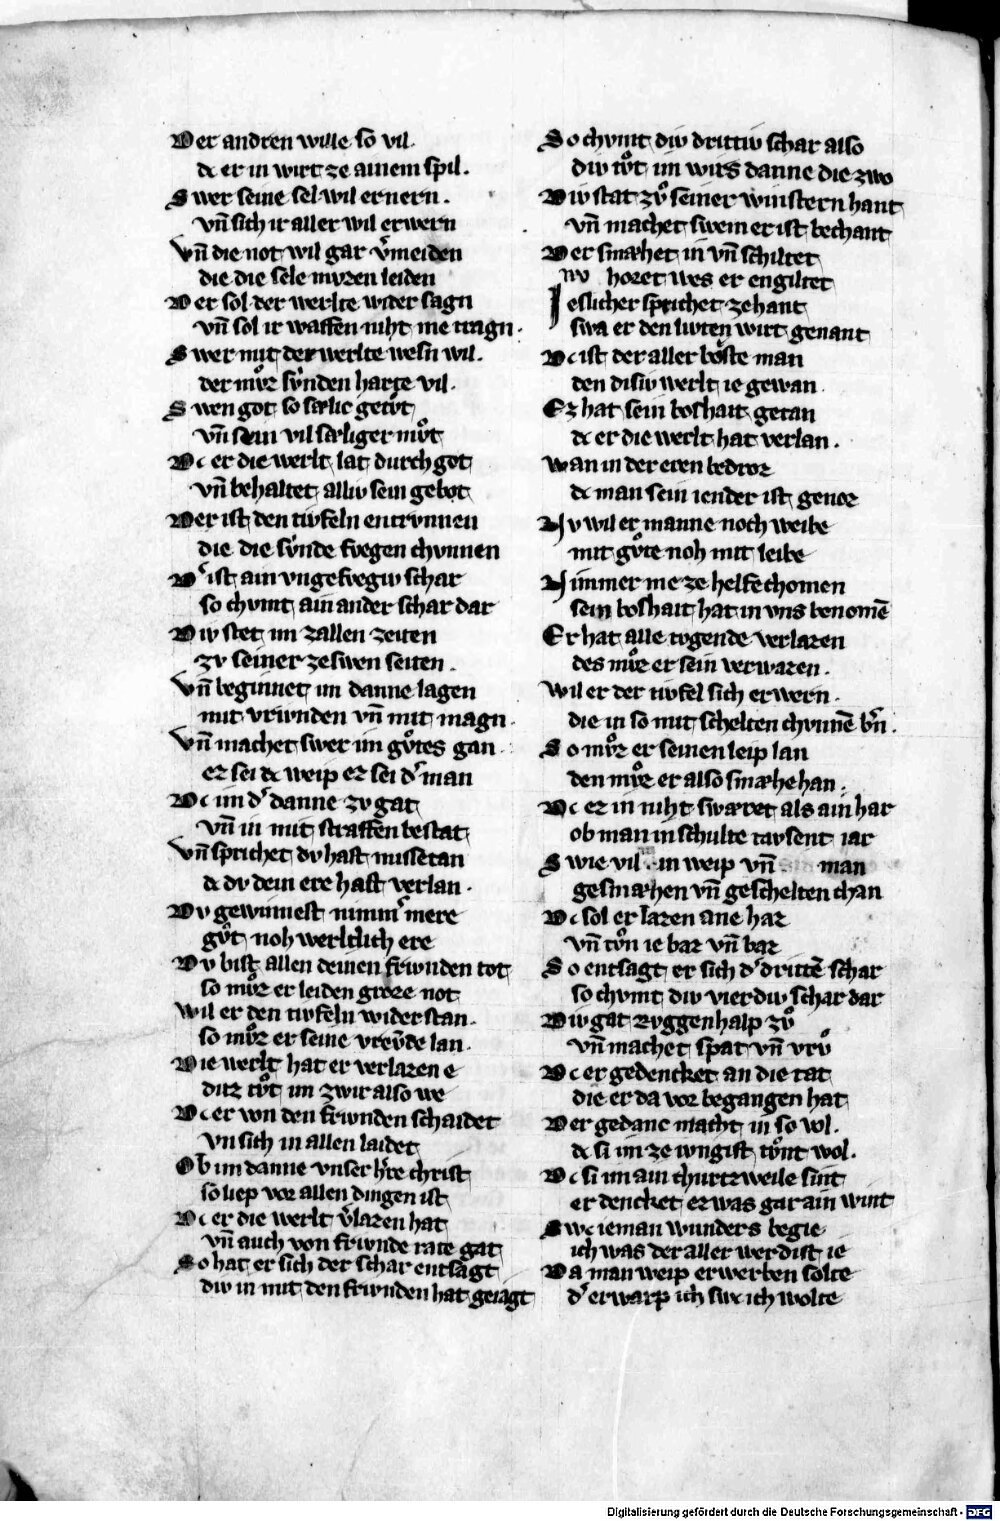 Der andren wille so vil.
dc er in wirt ze ainem spil.
Swer seine sel wil ernern.
vñ sich ir aller wil erwern
Vñ die not wil gar v̾meiden
die die sele mvzen leiden
Der sol der werlte wider sagn
vñ sol ir waffen niht me tragn.
Swer mit der werlte wesn wil.
der mvͦz svnden harte vil.
Swen got so sælic getvͦt
vñ sein vil sæliger mvͦt
Dc er die werlt lat durch got
vñ behaltet alliv sein gebot
Der ist den tivfeln entrvnnen
die die svnde fvegen chvnnen
D̾ ist ain vngefvegiv schar
so chvmt ain ander schar dar
Div stet im zallen zeiten
zv seiner zeswen seiten.
Vñ beginnet im danne lagen
mit vrivnden vñ mit magn.
Vñ machet swer im gvͦtes gan.
ez sei dc weip ez sei d̾ man
Dc im d̾ danne zv gat
vñ in mit straffen bestat
Vñ sprichet dv hast missetan
dc dv dein ere hast verlan.
Dv gewinnest nimm̾ mere
gvͦt noh werltlich ere
Dv bist allen deinen frivnden tot
so mvͦz er leiden groze not
Wil er den tivfeln widerstan.
so mvͦz er seine vrevde lan.
Die werlt hat er verlazen e
ditz tvͦt im zwir also we
Dc er von den frivnden schaidet
vn sich in allen laidet
Ob im danne vnser h̾re christ
so liep vor allen dingen ist
Dc er die werlt v̾lazen hat
vñ auch von frivnde rate gat
So hat er sich der schar entsagt
div in mit den frivnden hat geiagt
So chvmt div drittiv schar also
div tvͦt im wirs danne die zwo
Div stat zvͦ seiner winstern hant
vñ machet swem er ist bechant
Der smæhet in vñ schiltet
nv horet wes er engiltet
Ieslicher sprichet zehant
swa er den livten wirt genant
Dc ist der aller boste man
den disiv werlt ie gewan.
Ez hat sein boshait getan
dc er die werlt hat verlan.
Wan in der eren bedroz
dc man sein iender ist genoz
Nv wil er manne noch weibe
mit gvͦte noh mit leibe
Nimmer me ze helfe chomen
sein boshait hat in vns benomē
Er hat alle tvgende verlazen
des mvͦz er sein verwazen.
Wil er der tivfel sich erwern.
die in so mit schelten chvnnē b̾n.
So mvͦz er seinen leip lan
den mvͦz er also smæhe han.
Dc ez in niht swæret als ain har
ob man in schulte tavsent iar
Swie vil in weip vñ man
gesmæhen vñ geschelten chan
Dc sol er lazen ane haz
vñ tvͦn ie baz vñ baz
So entsagt er sich d̾ drittē schar
so chvmt div vierdiv schar dar
Div gat rvggenhalp zvͦ
vñ machet spat vñ vrvͦ
Dc er gedencket an die tat
die er da vor begangen hat
Der gedanc macht in so vol.
dc si im ze ivngist tvͦnt wol.
Dc si im ain churtzweile sint
er dencket ez was gar ain wint
Swc ieman wunders begie
ich was der aller werdist ie
Da man weip erwerben solte
d̾ erwarp ich swc ich wolte
Digitalisierung gefördert durch die Deutsche Forschungsgemeinschaft - DFG